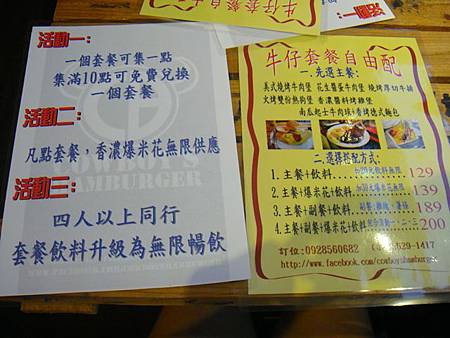 活動一:
一個套餐可集一點
集滿10點可免費兌換
一個套餐
活動二:
凡點套餐,香濃爆米花無限供應
活動三:
四人以上同行
套餐飲料升級為無限暢飲
牛仔套餐自由配
一.先選主餐:
美式燒烤牛肉堡 花生醬蛋牛肉堡 燒烤厚切牛排
火烤雙份熱狗堡 香濃醬料烤雞堡
南瓜起士牛肉球+香烤德式麵包
二.選擇搭配方式:
1.主餐+飲料 加20元飲料無限 129
2.主餐+爆米花+飲料 139
3.主餐+副餐+飲料 189
4.主餐+副餐+爆米花+飲料 200
訂位:0928560682
629-1417
http://www.facebook.com/cowboyshamburger